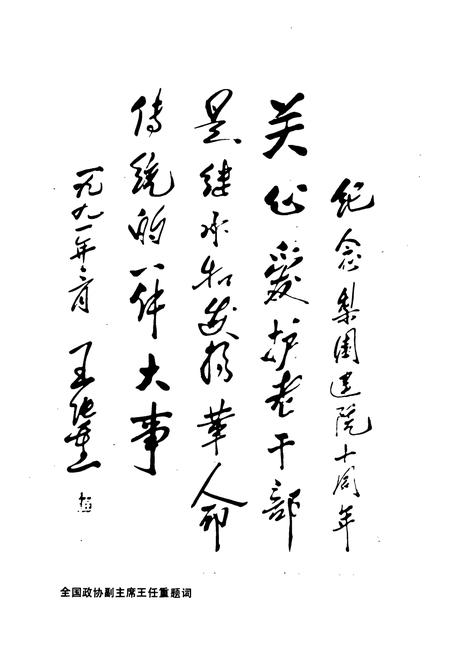 纪念梨园建院十周年
关心爱护老干部
是继承和发扬革命
传统的一件大事
一九九一年三月
王任重
全国政协副主席王任重题词